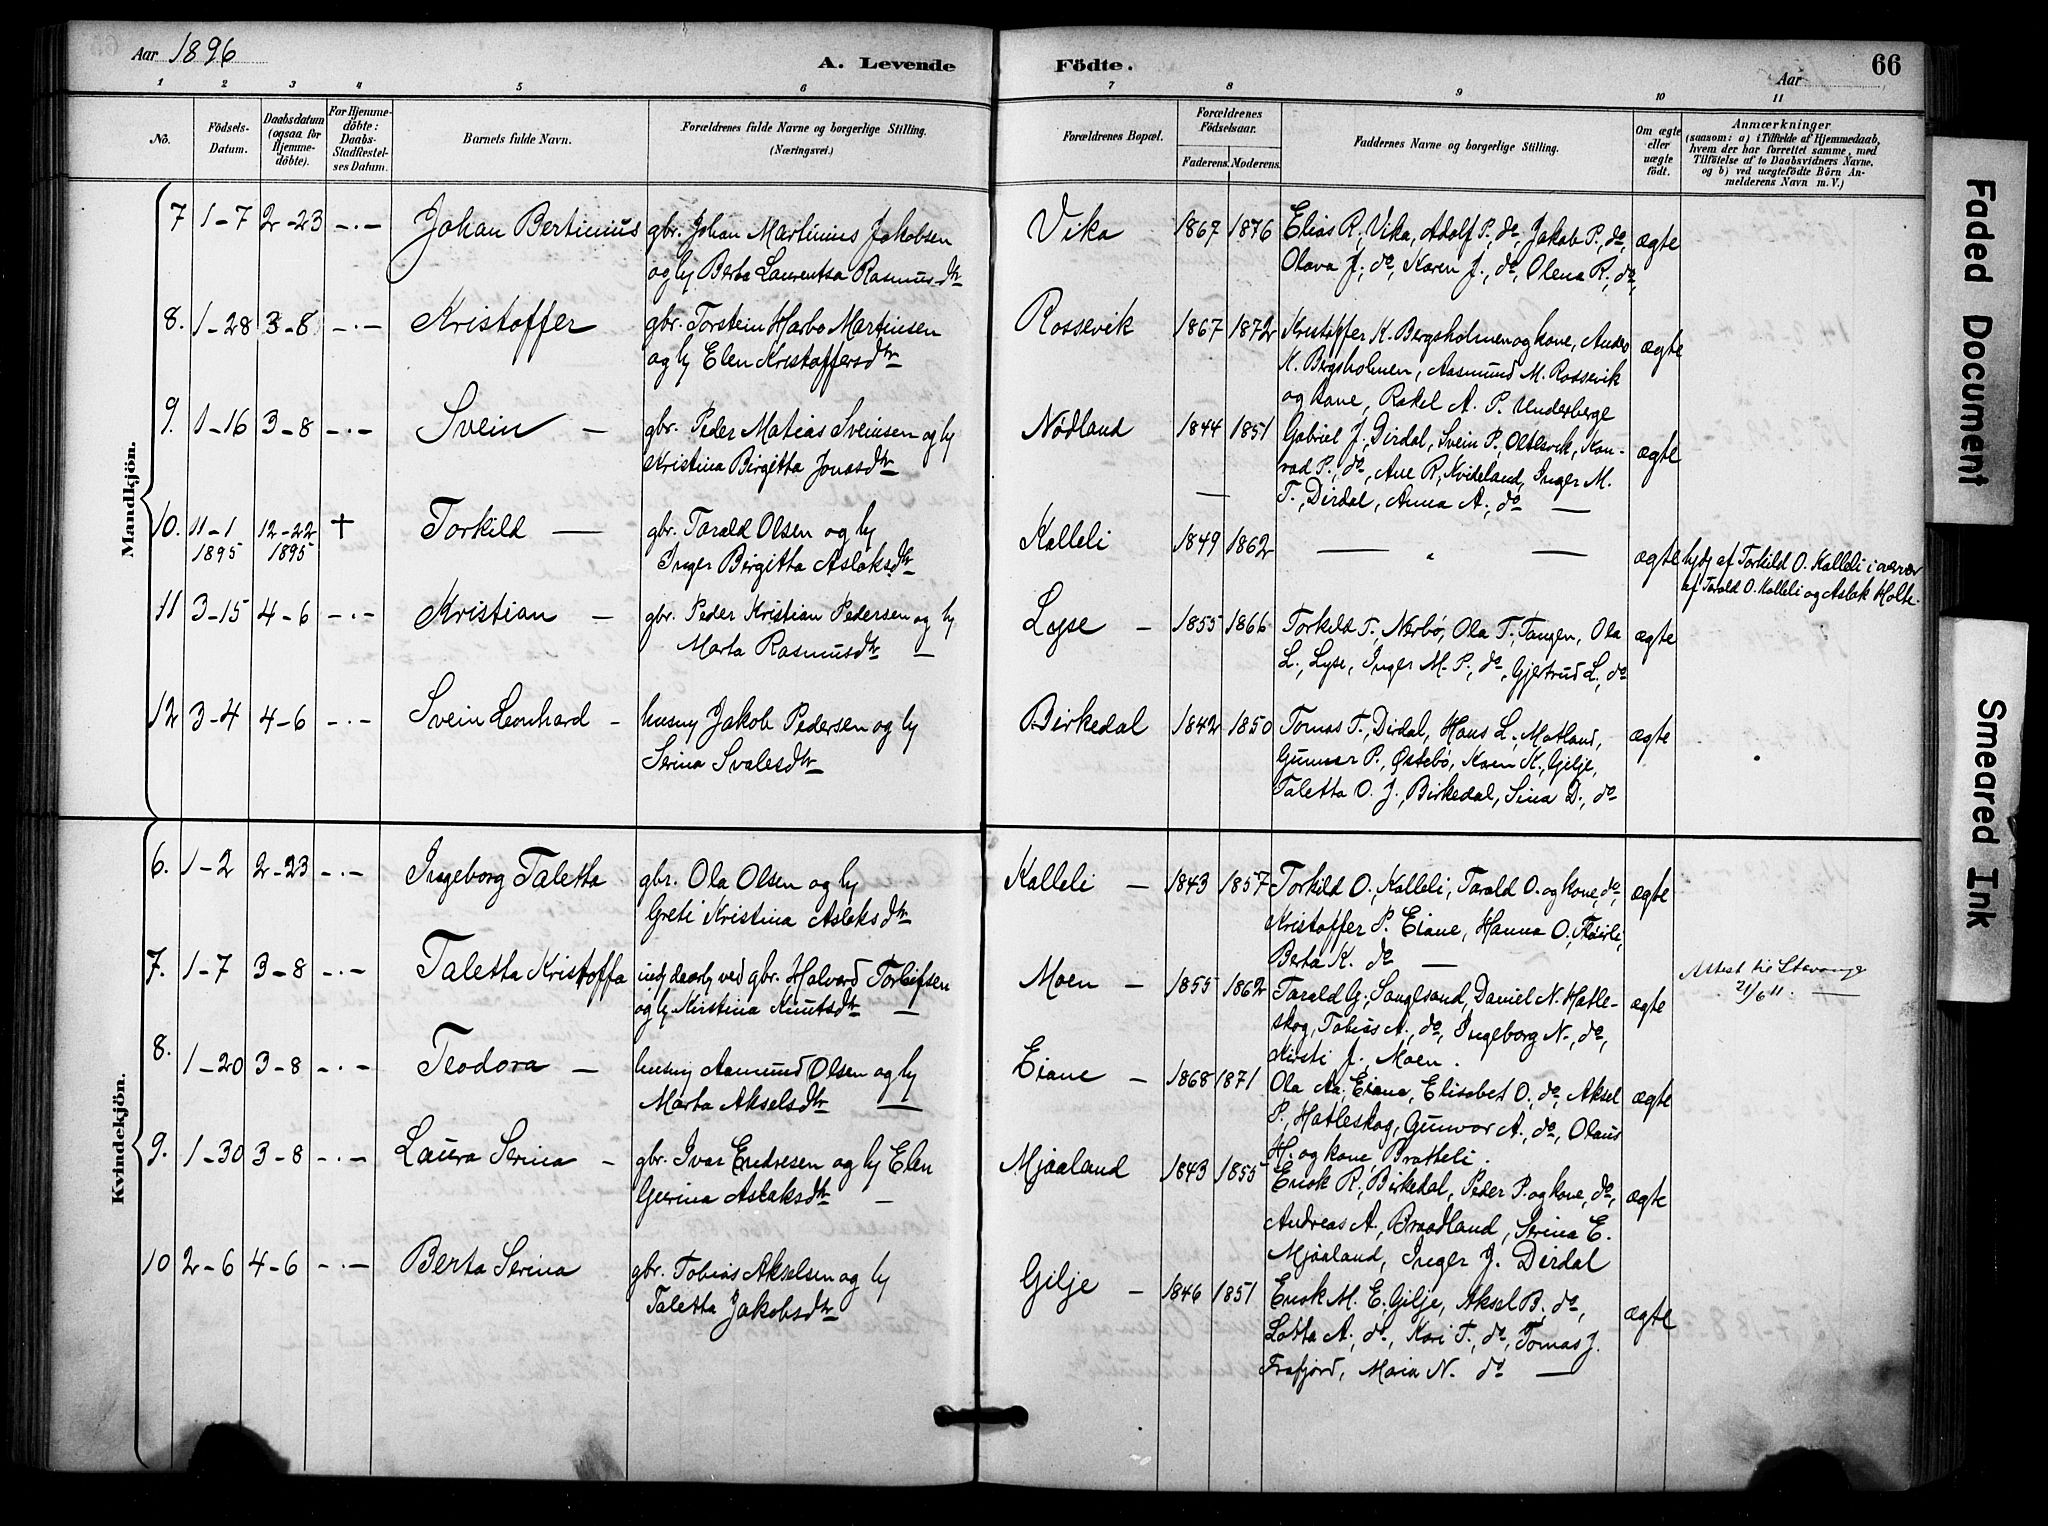 Aar 1896
A. Levende
Födte.
Aar
66
1 2 3 4 5 6 7 8 9 10 11
No.
Födsels-Datum.
Daabsdatum (ogsaa for Hjemme-döbte).
For Hjemme-döbte: Daabs-Stadfæstel-ses Datum.
Barnets fulde Navn.
Forældrenes fulde Navne og borgerlige Stilling. (Næringsvei.)
Forældrenes Bopæl.
Forældrenes Födselsaar.
Faderens. Moderens.
Faddernes Navne og borgerlige Stilling.
Om ægte eller uægte födt.
Anmærkninger
(saasom: a) i Tilfælde af Hjemmedaab, hvem der har forrettet samme, med Tilföielse af to Daabsvidners Navne, og b) ved uægtefödte Börn An-melderens Navn m. V.)
Mandkjön.
7 1-7 2-23 -.- Johan Bertinius gbr. Johan Martinius Jakobsen Vika 1867 1876 Elias R. Vika, Adolf P., do, Jakob P., do, ægte
og h Berta Laurentsa Rasmusdtr Olava J., do, Karen J., do, Olena R., do,
8. 1-28 3-8 -.- Kristoffer gbr. Torstein Harbo Martinsen Rossevik 1867 1872 Kristoffer K. Bergsholmen og kone, Anders ægte
og h Elen Kristoffersdtr K. Bergsholmen, Aasmund M. Rossevik
og kone, Rakel A. P. Underberge
9. 1-16 3-8 -.- Svein — gbr. Peder Matias Sveinsen og h Nødland 1844 1851 Gabriel J., Dirdal, Svein P. Oltesvik, Kon- ægte
Kristina Birgitta Jonasdtr rad P., do, Ane R, Kvideland, Inger M.
T., Dirdal, Anna A., do —
10. 11-1 1895 12-22 1895 † Torkild — gbr. Tarald Olsen og h Kalleli 1849 1862 — " — ægte hjdg af Torkild O. Kalleli i overvær
Inger Birgitta Aslaksdtr af Tarald O. Kalleli og Aslak Holte.
11 3-15 4-6 -.- Kristian — gbr. Peder Kristian Pedersen og h Lyse — 1855 1866 Torkild T. Nerbø, Ola T., Tangen, Ola ægte
Marta Rasmusdtr — L., Lyse, Inger M. P., do, Gjertrud L., do
12 3-4 4-6 -.- Svein Leonhard — husm Jakob Pedersen og h Birkedal 1842 1850 Tomas T., Dirdal, Hans L., Matland, ægte
Serina Svalesdtr Gunnar P., Østebø, Karen K., Gilje,
Taletta O. J., Birkedal, Sina D., do
Kvindekjön.
6. 1-2 2-23 -.- Ingeborg Taletta gbr. Ola Olsen og h Kalleli — 1843 1857 Torkild O., Kalleli, Tarald O. og kone, do, ægte
Greti Kristina Aslaksdtr Kristoffer P. Eiane, Hanna O., Fløirli,
Berta K. do —
7. 1-7 3-8 -.- Taletta Kristoffa gbr. Halvard Torleifsen Moen — 1855 1862 Tarald G., Songesand, Daniel N. Hatle- ægte Attest til Stavanger
og h Kristina Knutsdtr — skog, Tobias A., do, Ingeborg N., do, 21/6 11. —
Kirsti J., Moen.
8. 1-20 3-8 -.- Teodora — husm Aamund Olsen og h Eiane — 1868 1871 Ola Aa, Eiane, Elisabet O., do, Aksel ægte
Marta Akselsdtr — P., Hatleskog, Gunvor A., do, Olaus
H. og kone Bratteli.
9. 1-30 3-8 -.- Laura Serina — gbr. Ivar Endresen og h Elen Mjaaland 1843 1855 Enok R., Birkedal, Peder P. og kone, do, ægte
Geerina Aslaksdtr — Andreas A., Braadland, Serina E.
Mjaaland, Inger J. Dirdal
10 2-6 4-6 -.- Berta Serina gbr. Tobias Akselsen og h Gilje — 1846 1851 Enok M. E., Gilje, Aksel B., do, ægte
Taletta Jakobsdtr Lotta A., do, Kari T., do, Tomas J.
Frafjord, Maria N. do —
Faded Document
Smeared Ink